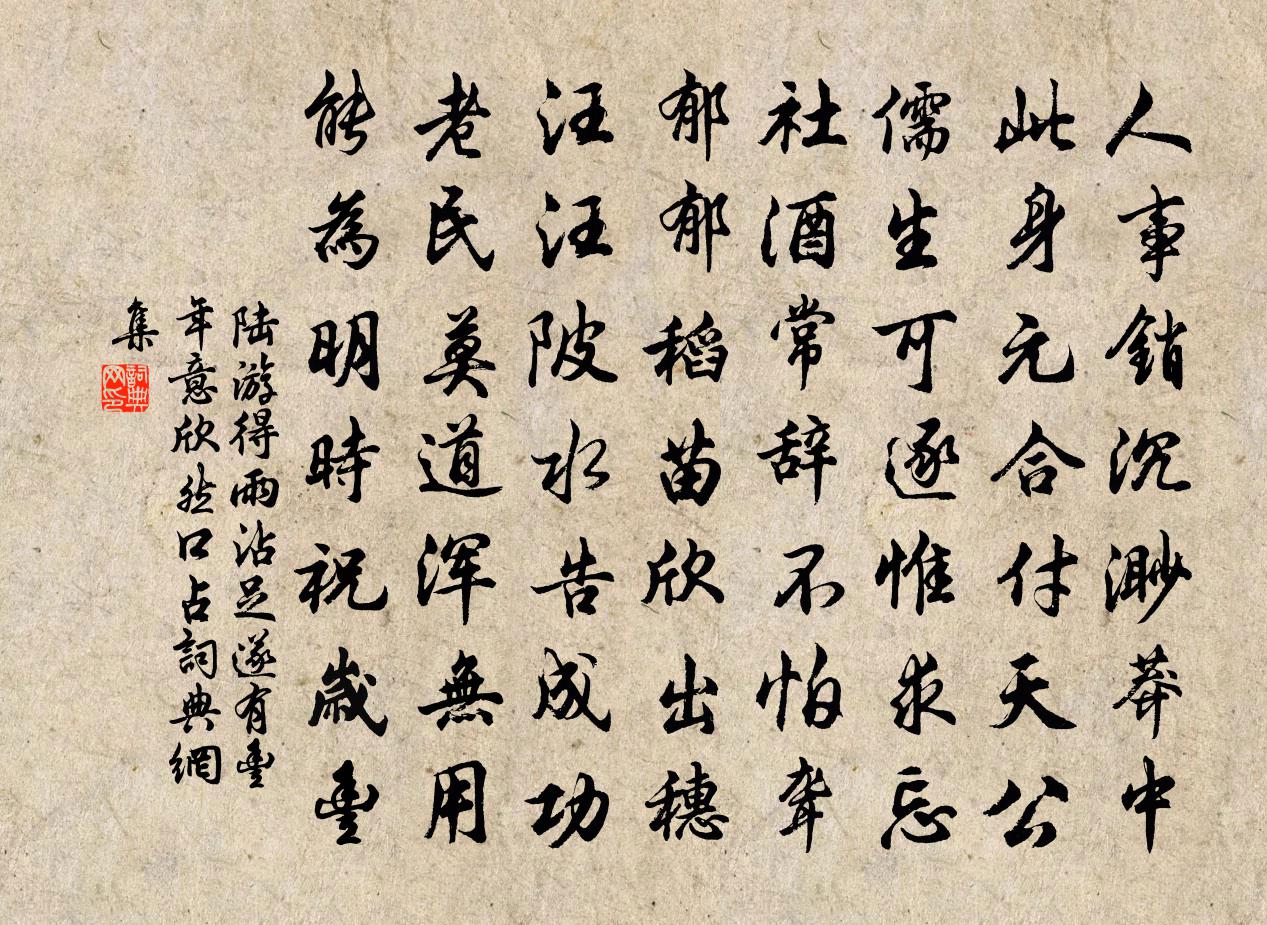 人事銷沉渺莽中
此身元合付天公
儒生可逐惟求忘
社酒常辞不怕聋
郁郁稻苗欣出穗
汪汪陂水告成功
老民莫道浑無用
能為明時祝歲豊
陆游得雨沾足遂有豊
年意欣然口占詞典網
集
詞典
网印